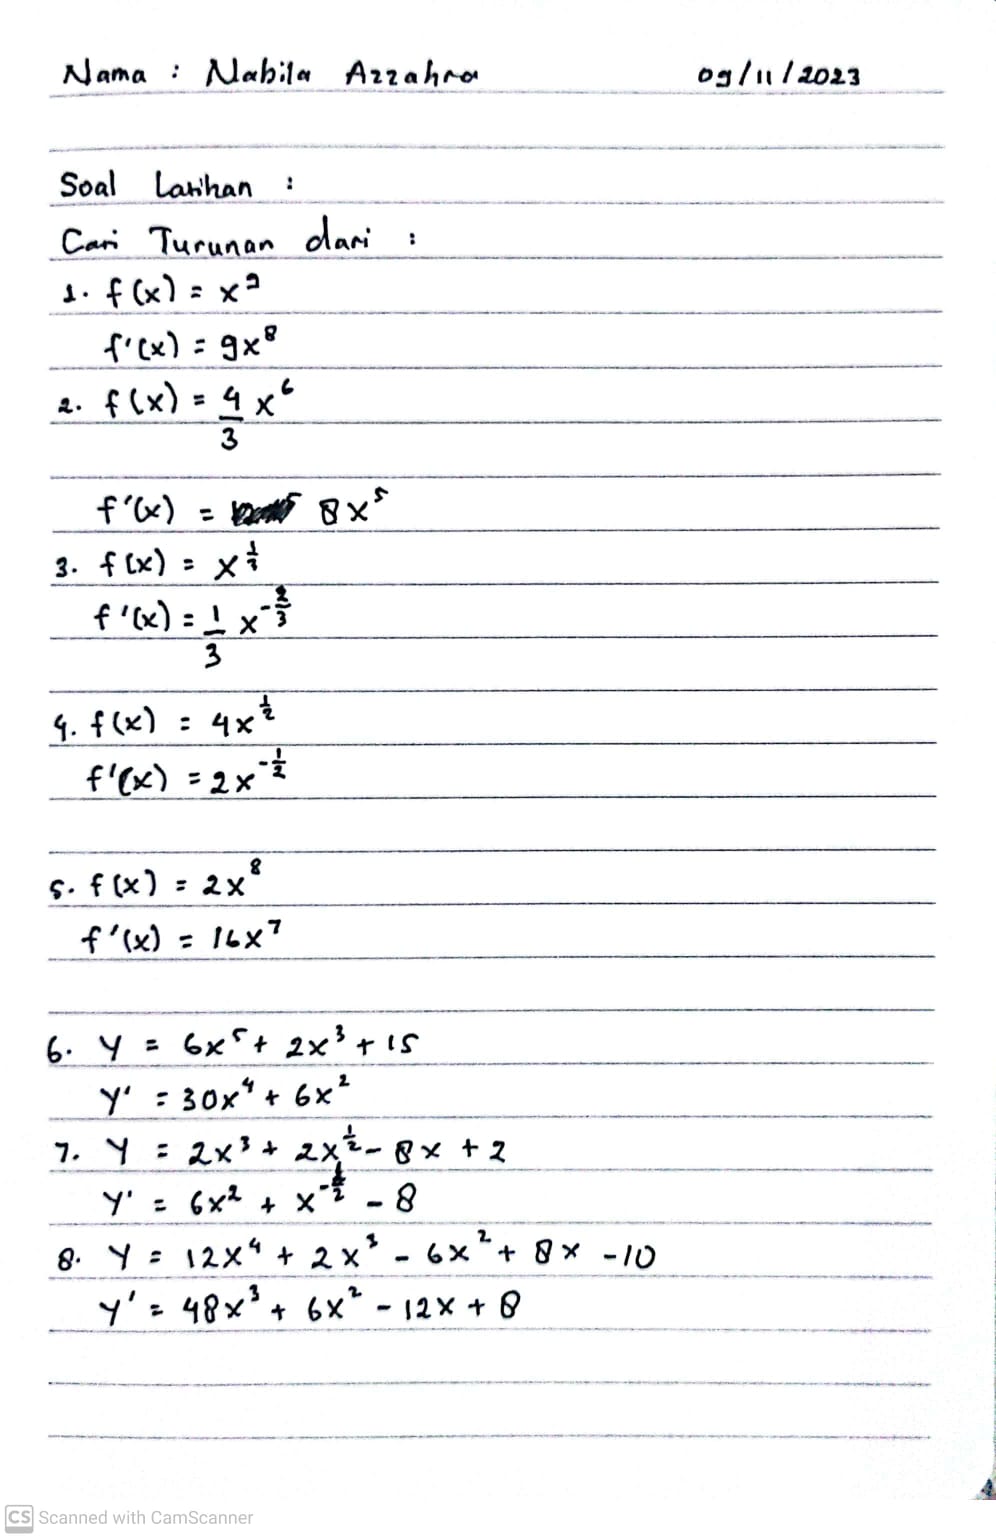 Nama : Nabila Azzahra 09/11/2023
Soal Latihan :
Cari Turunan dari :
1. f(x) = x⁹
f'(x) = 9x⁸
2. f(x) = 4/3 x⁶
f'(x) = 8x⁵
3. f(x) = x^(1/3)
f'(x) = 1/3 x^(-2/3)
4. f(x) = 4x^(1/2)
f'(x) = 2x^(-1/2)
5. f(x) = 2x⁸
f'(x) = 16x⁷
6. Y = 6x⁵ + 2x³ + 15
Y' = 30x⁴ + 6x²
7. Y = 2x³ + 2x^(1/2) - 8x + 2
Y' = 6x² + x^(-1/2) - 8
8. Y = 12x⁴ + 2x³ - 6x² + 8x - 10
Y' = 48x³ + 6x² - 12x + 8
CS Scanned with CamScanner